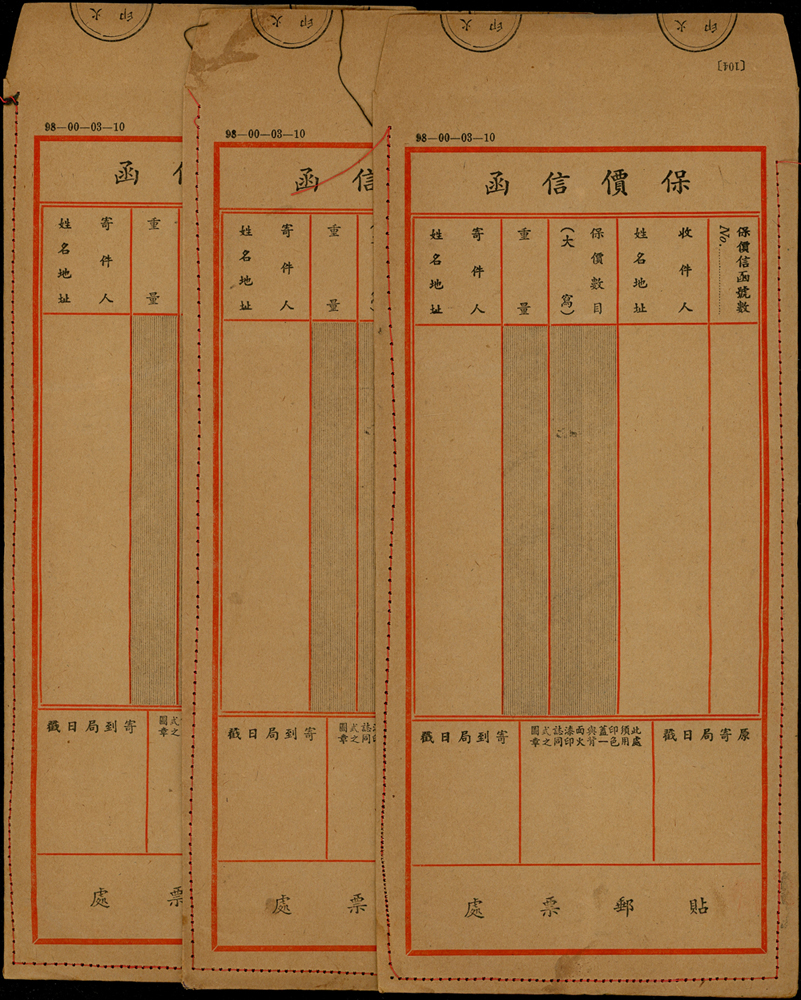 火印
火印
[104]
98—00—03—10
保價信函
保價信函號數
No.
收件人
姓名地址
保價數目
(大寫)
重量
寄件人
姓名地址
原寄局日戳
此處須用印色蓋一與背面火漆印誌同式之圖章
寄到局日戳
貼郵票處
火印
98—00—03—10
信函
重量
寄件人
姓名地址
誌同式之圖章
寄到局日戳
票處
火印
98—00—03—10
函
重量
寄件人
姓名地址
式之圖章
寄到局日戳
票處